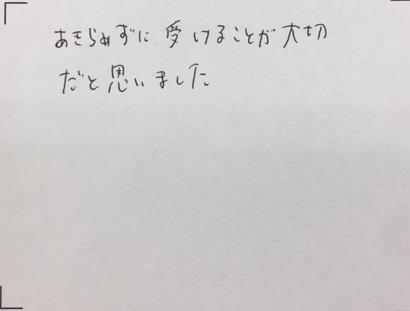 あきらめずに受けることが大切
だと思いました